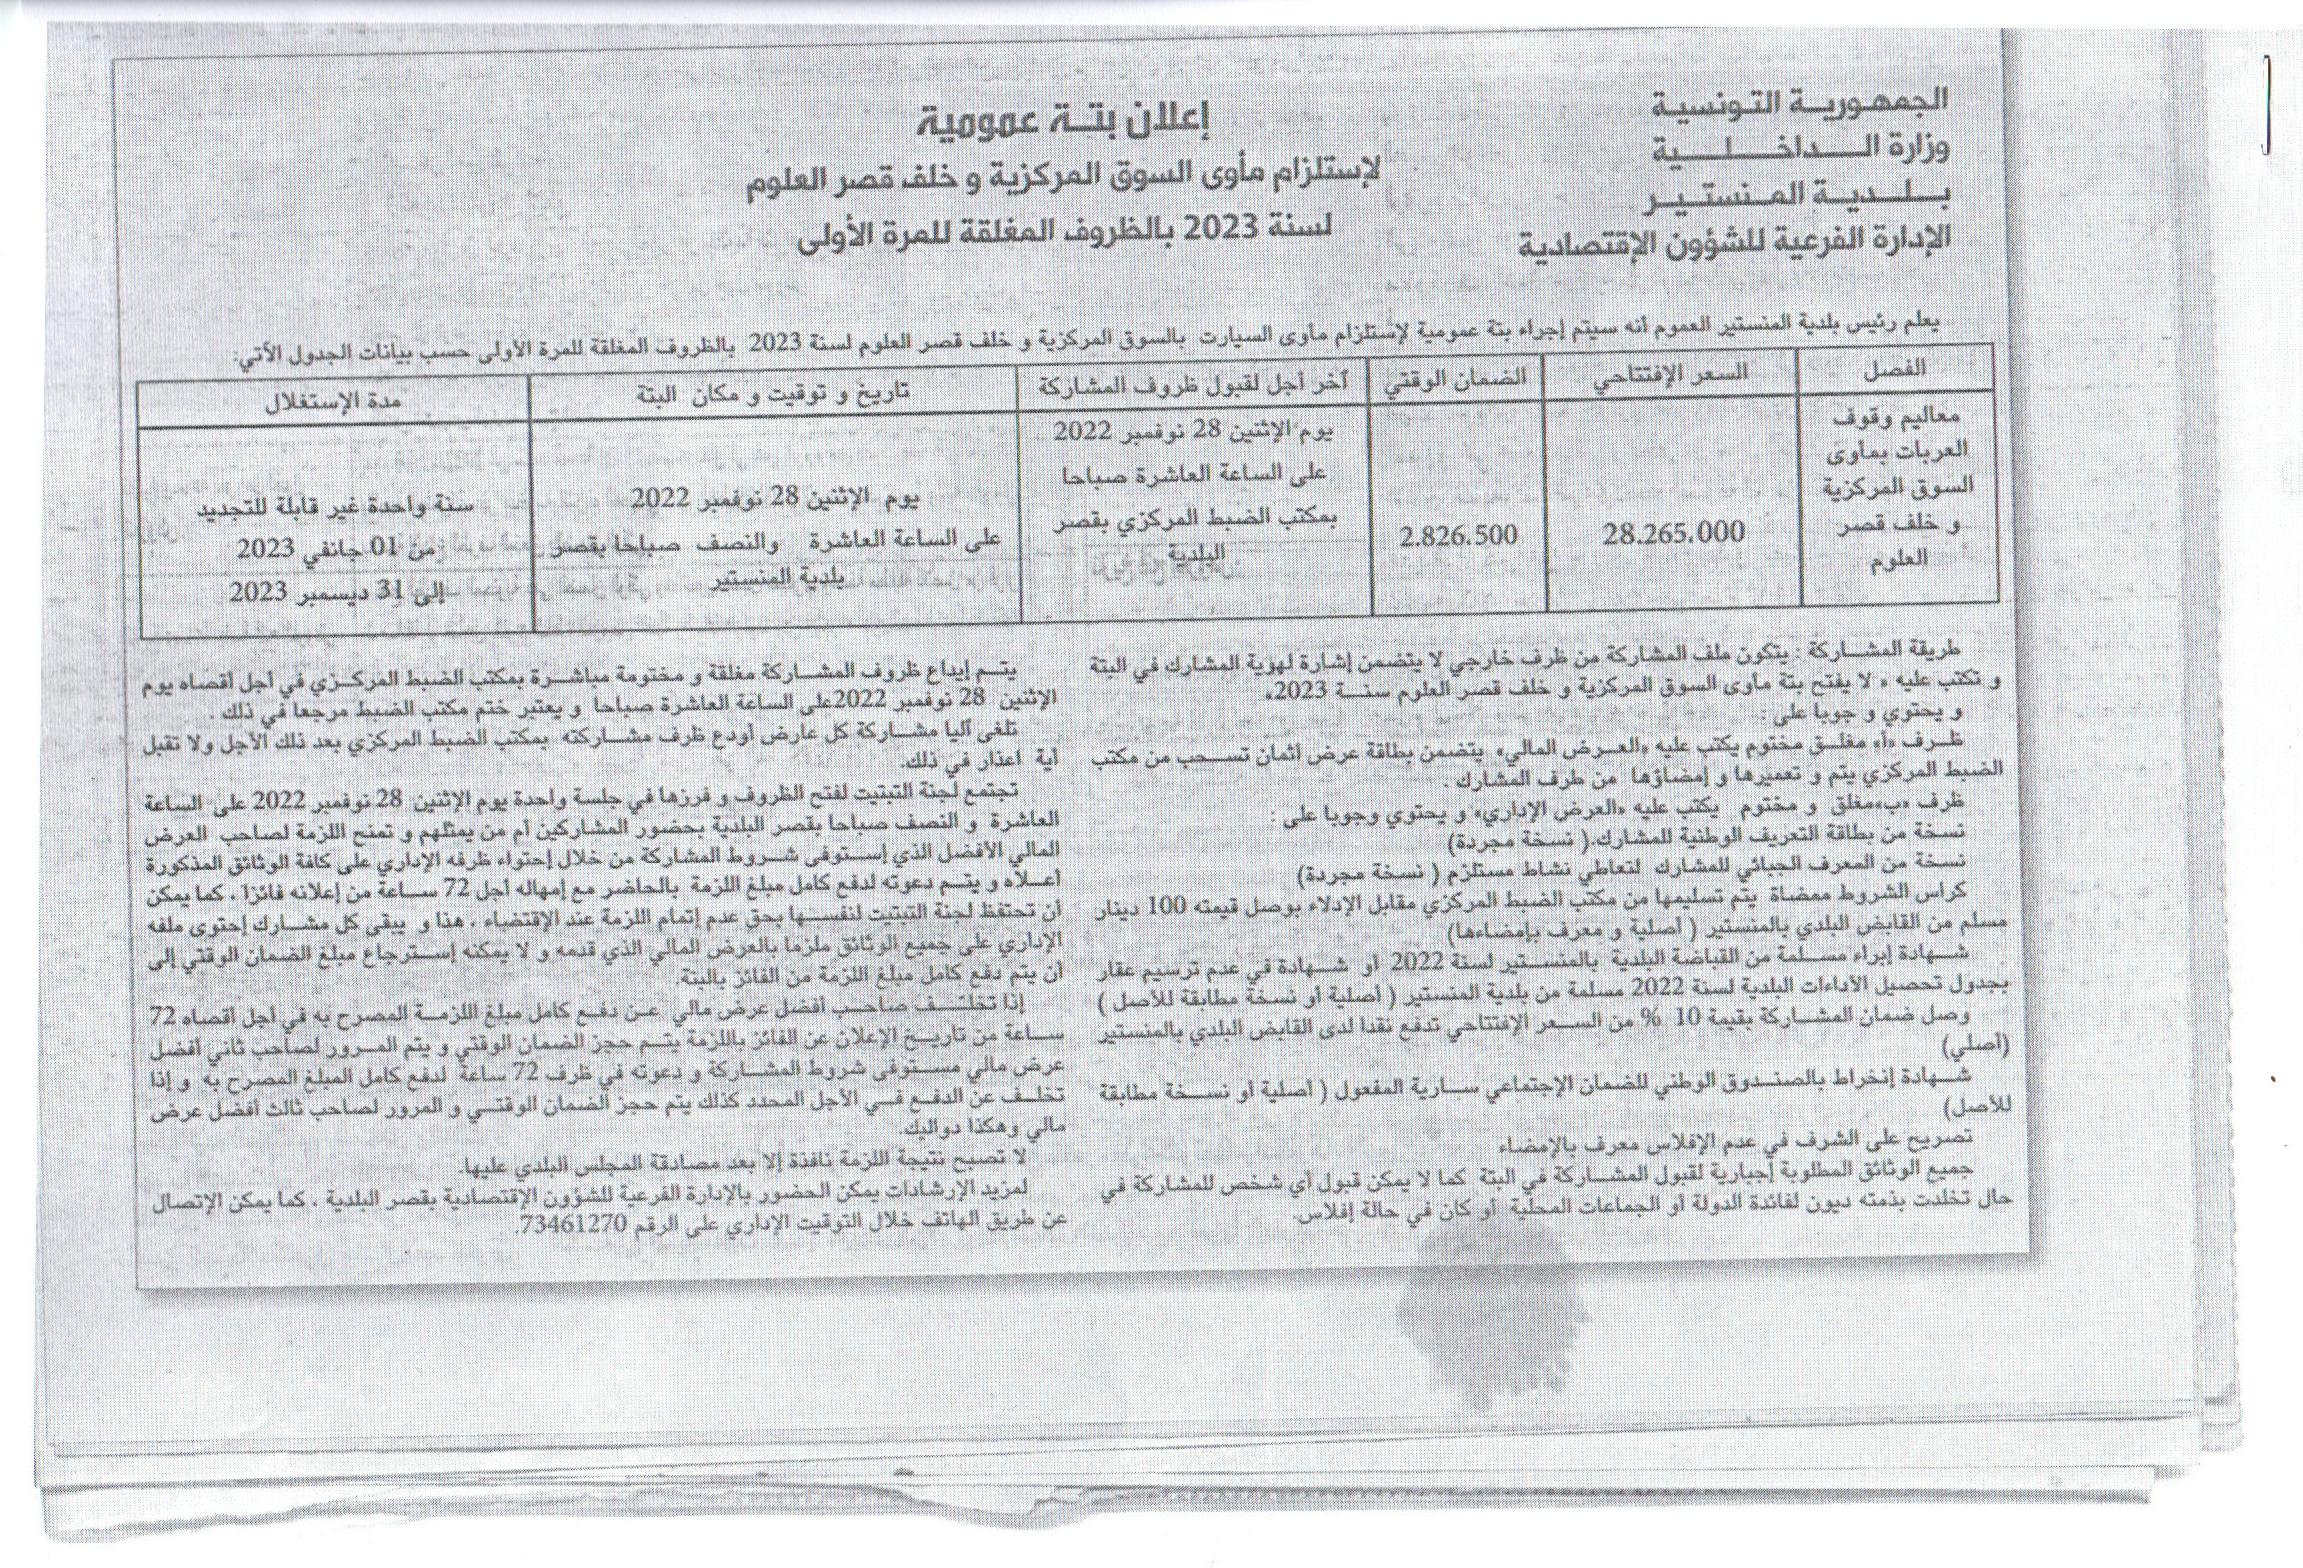 الجمهورية التونسية
وزارة الداخلية
بلدية المنستير
الإدارة الفرعية للشؤون الإقتصادية
إعلان بتة عمومية
لإستلزام مأوى السوق المركزية و خلف قصر العلوم
لسنة 2023 بالظروف المغلقة للمرة الأولى
يعلم رئيس بلدية المنستير العموم أنه سيتم إجراء بتة عمومية لإستلزام مأوى السيارت بالسوق المركزية و خلف قصر العلوم لسنة 2023 بالظروف المغلقة للمرة الأولى حسب بيانات الجدول الآتي:
الفصل
السعر الإفتتاحي
الضمان الوقتي
آخر أجل لقبول ظروف المشاركة
تاريخ و توقيت و مكان البتة
مدة الإستغلال
معاليم وقوف
العربات بمأوى
السوق المركزية
و خلف قصر
العلوم
28.265.000
2.826.500
يوم الإثنين 28 نوفمبر 2022
على الساعة العاشرة صباحا
بمكتب الضبط المركزي بقصر
البلدية
يوم الإثنين 28 نوفمبر 2022
على الساعة العاشرة والنصف صباحا بقصر
بلدية المنستير
سنة واحدة غير قابلة للتجديد
من 01 جانفي 2023
إلى 31 ديسمبر 2023
طريقة المشاركة : يتكون ملف المشاركة من ظرف خارجي لا يتضمن إشارة لهوية المشارك في البتة
و تكتب عليه « لا يفتح بتة مأوى السوق المركزية و خلف قصر العلوم سنة 2023»
و يحتوي و جوبا على :
ظرف «أ» مغلق مختوم يكتب عليه «العرض المالي» يتضمن بطاقة عرض أثمان تسحب من مكتب
الضبط المركزي يتم و تعميرها و إمضاؤها من طرف المشارك .
ظرف «ب»مغلق و مختوم يكتب عليه «العرض الإداري» و يحتوي وجوبا على :
نسخة من بطاقة التعريف الوطنية للمشارك.( نسخة مجردة)
نسخة من المعرف الجبائي للمشارك لتعاطي نشاط مستلزم ( نسخة مجردة)
كراس الشروط ممضاة يتم تسليمها من مكتب الضبط المركزي مقابل الإدلاء بوصل قيمته 100 دينار
مسلم من القابض البلدي بالمنستير ( أصلية و معرف بإمضاءها)
شهادة إبراء مسلمة من القباضة البلدية بالمنستير لسنة 2022 أو شهادة في عدم ترسيم عقار
بجدول تحصيل الأداءات البلدية لسنة 2022 مسلمة من بلدية المنستير ( أصلية أو نسخة مطابقة للأصل )
وصل ضمان المشاركة بقيمة 10 % من السعر الإفتتاحي تدفع نقدا لدى القابض البلدي بالمنستير
(أصلي)
شهادة إنخراط بالصندوق الوطني للضمان الإجتماعي سارية المفعول ( أصلية أو نسخة مطابقة
للأصل)
تصريح على الشرف في عدم الإفلاس معرف بالإمضاء
جميع الوثائق المطلوبة إجبارية لقبول المشاركة في البتة كما لا يمكن قبول أي شخص للمشاركة في
حال تخلدت بذمته ديون لفائدة الدولة أو الجماعات المحلية أو كان في حالة إفلاس.
يتم إيداع ظروف المشاركة مغلقة و مختومة مباشرة بمكتب الضبط المركزي في أجل أقصاه يوم
الإثنين 28 نوفمبر 2022على الساعة العاشرة صباحا و يعتبر ختم مكتب الضبط مرجعا في ذلك .
تلغى آليا مشاركة كل عارض أودع ظرف مشاركته بمكتب الضبط المركزي بعد ذلك الأجل ولا تقبل
أية اعذار في ذلك.
تجتمع لجنة التبتيت لفتح الظروف و فرزها في جلسة واحدة يوم الإثنين 28 نوفمبر 2022 على الساعة
العاشرة و النصف صباحا بقصر البلدية بحضور المشاركين أم من يمثلهم و تمنح اللزمة لصاحب العرض
المالي الأفضل الذي إستوفى شروط المشاركة من خلال إحتواء ظرفه الإداري على كافة الوثائق المذكورة
أعلاه و يتم دعوته لدفع كامل مبلغ اللزمة بالحاضر مع إمهاله أجل 72 ساعة من إعلانه فائزا ، كما يمكن
أن تحتفظ لجنة التبتيت لنفسها بحق عدم إتمام اللزمة عند الإقتضاء ، هذا و يبقى كل مشارك إحتوى ملفه
الإداري على جميع الوثائق ملزما بالعرض المالي الذي قدمه و لا يمكنه إسترجاع مبلغ الضمان الوقتي إلى
أن يتم دفع كامل مبلغ اللزمة من الفائز بالبتة.
إذا تخلف صاحب أفضل عرض مالي عن دفع كامل مبلغ اللزمة المصرح به في أجل أقصاه 72
ساعة من تاريخ الإعلان عن الفائز باللزمة يتم حجز الضمان الوقتي و يتم المرور لصاحب ثاني أفضل
عرض مالي مستوفى شروط المشاركة و دعوته في ظرف 72 ساعة لدفع كامل المبلغ المصرح به و إذا
تخلف عن الدفع في الأجل المحدد كذلك يتم حجز الضمان الوقتي و المرور لصاحب ثالث أفضل عرض
مالي وهكذا دواليك.
لا تصبح نتيجة اللزمة نافذة إلا بعد مصادقة المجلس البلدي عليها.
لمزيد الإرشادات يمكن الحضور بالإدارة الفرعية للشؤون الإقتصادية بقصر البلدية ، كما يمكن الإتصال
عن طريق الهاتف خلال التوقيت الإداري على الرقم 73461270.